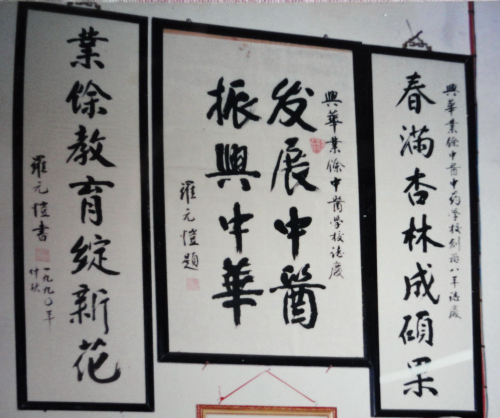 興華業餘中醫中药学校創辦八年誌慶
春滿杏林成碩果
興華業餘中醫学校誌慶
发展中醫
振興中華
羅元愷題
業餘教育綻新花
羅元愷書
一九九〇年